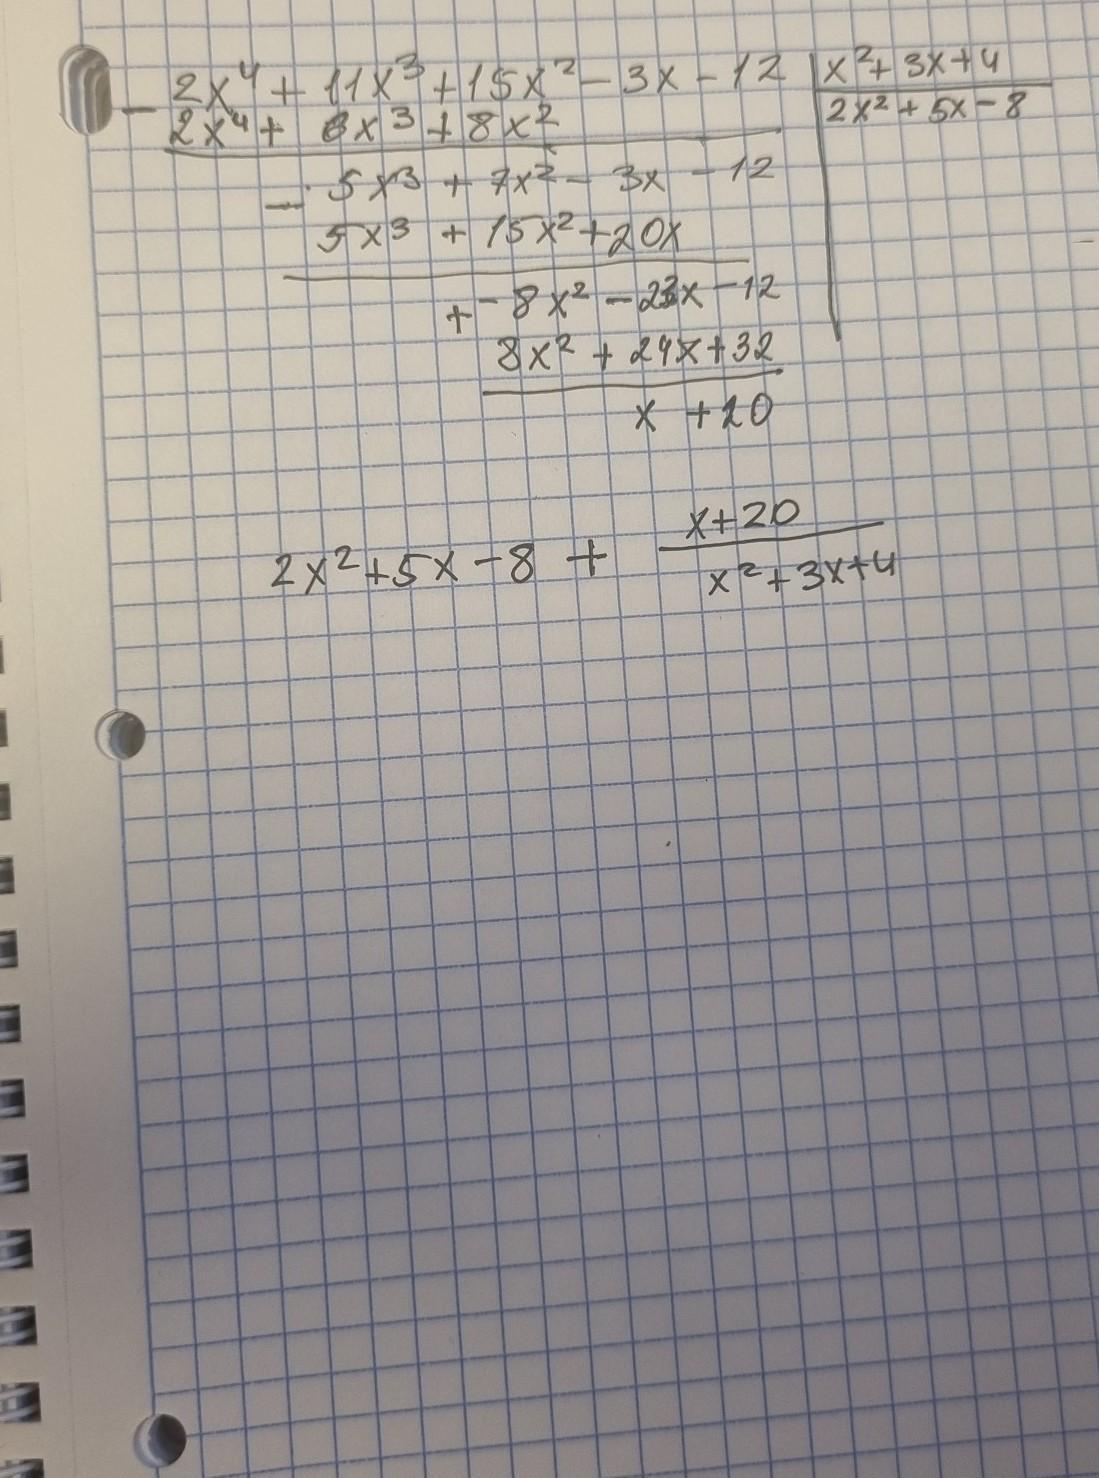 - 2x⁴ + 11x³ + 15x² - 3x - 12 | x² + 3x + 4
2x⁴ + 6x³ + 8x² | 2x² + 5x - 8
- 5x³ + 7x² - 3x - 12
5x³ + 15x² + 20x
+ - 8x² - 23x - 12
8x² + 24x + 32
x + 20
2x² + 5x - 8 + x + 20
x² + 3x + 4